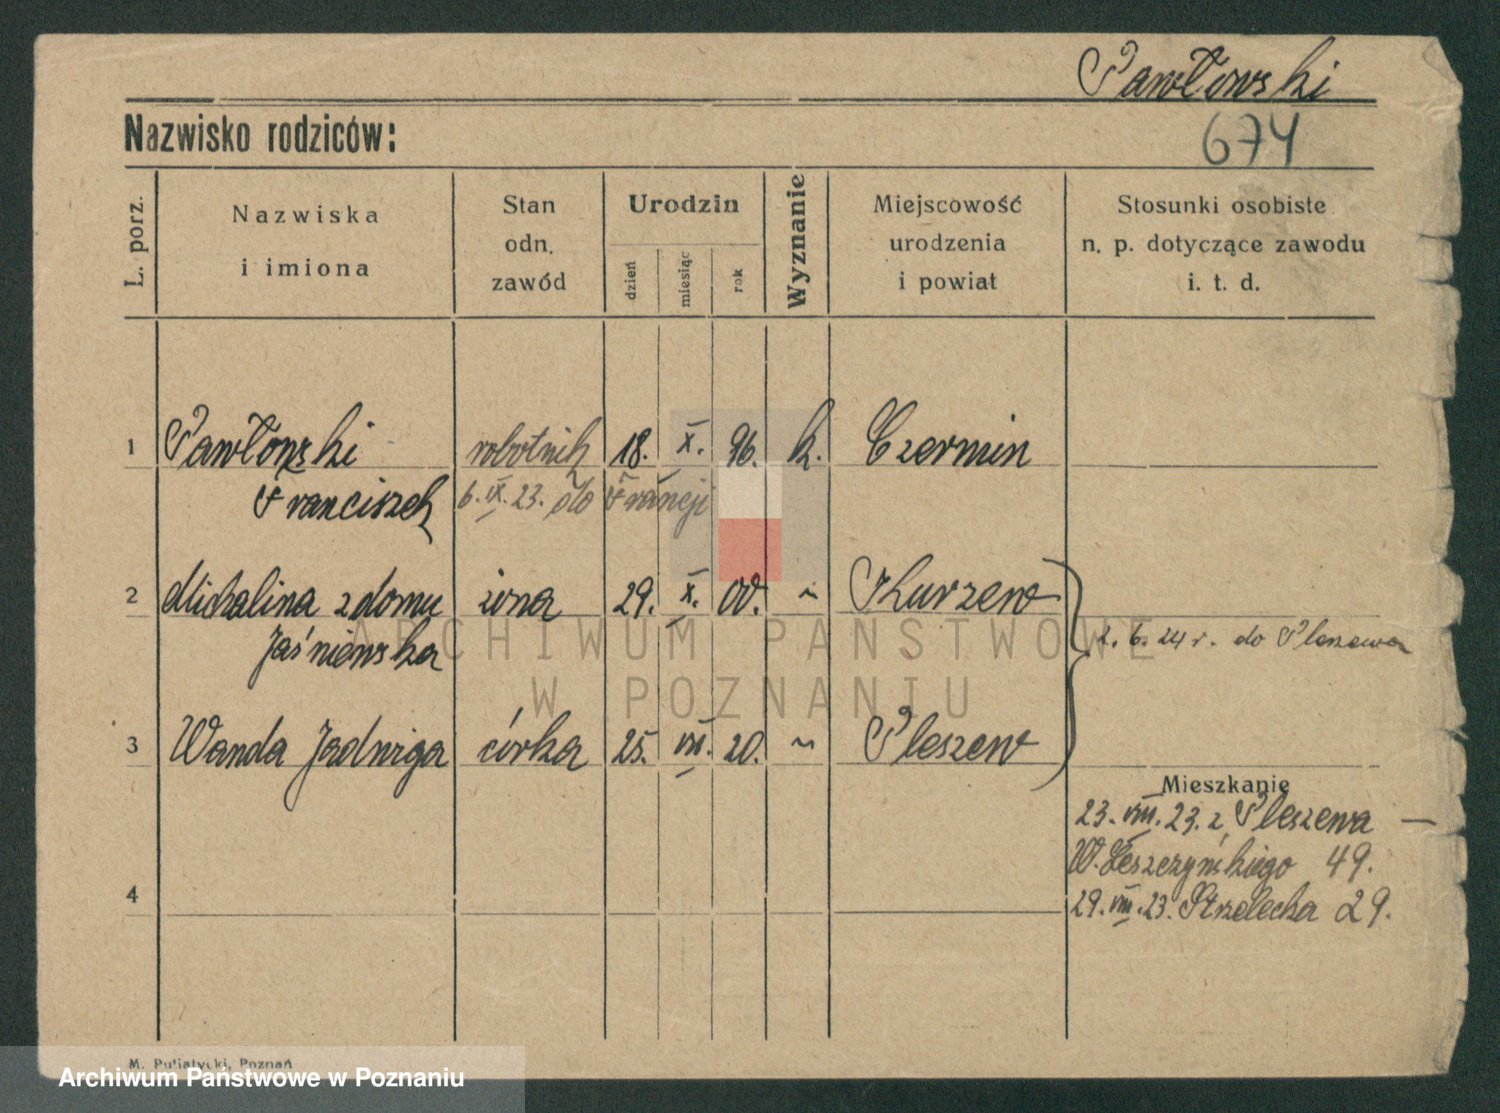 Pawłowski
Nazwisko rodziców:
674
L. porz.
Nazwiska
i imiona
Stan
odn.
zawód
Urodzin
dzień
miesiąc
rok
Wyznanie
Miejscowość
urodzenia
i powiat
Stosunki osobiste
n. p. dotyczące zawodu
i. t. d.
1 Pawłowski robotnik 18. X. 96. k. Czermin
Franciszek 6. IX. 23. do Francji
2 Michalina z domu żona 29. X. 00. ~ Kurzew
Jaśniewska 2. 6. 24 r. do Pleszewa
3 Wanda Jadwiga córka 25. VII. 20. ~ Pleszew
Mieszkanie
23. VIII. 23. z Pleszewa —
W. Leszczyńskiego 49.
4 29. VIII. 23. Strzelecka 29.
M. Putiatycki, Poznań
ARCHIWUM PAŃSTWOWE
W POZNANIU
Archiwum Państwowe w Poznaniu